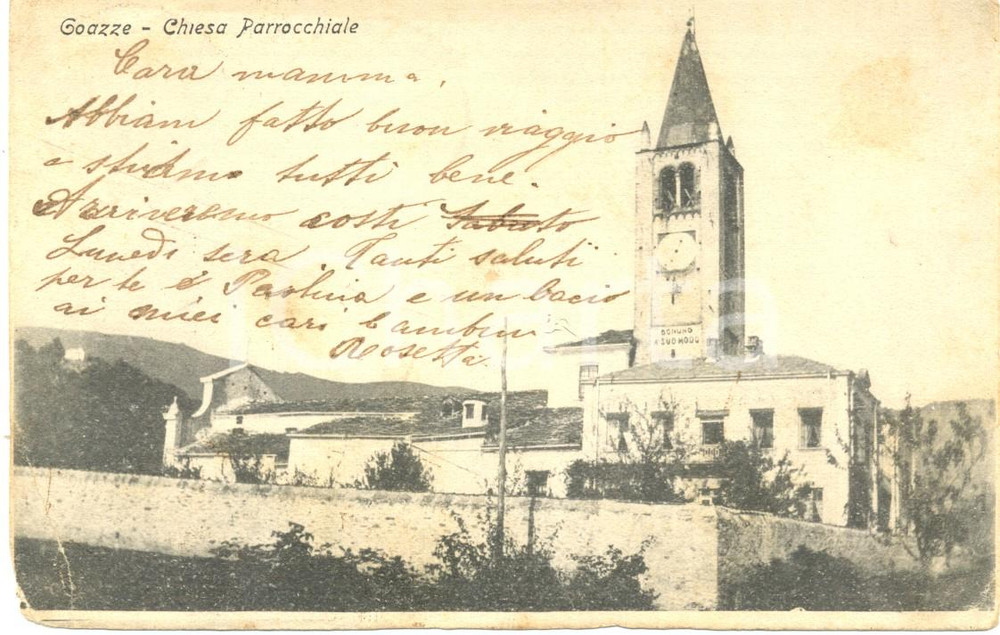 Coazze - Chiesa Parrocchiale
Cara mamma,
Abbiam fatto buon viaggio
e stiamo tutti bene.
Arriveremo costì Sabato
Lunedì sera. Tanti saluti
per te e Paolina e un bacio
ai miei cari bambini
Rosetta
OGNUNO
A SUO MODO